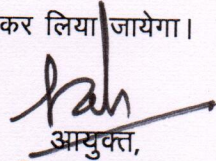 कर लिया जायेगा।
आयुक्त,